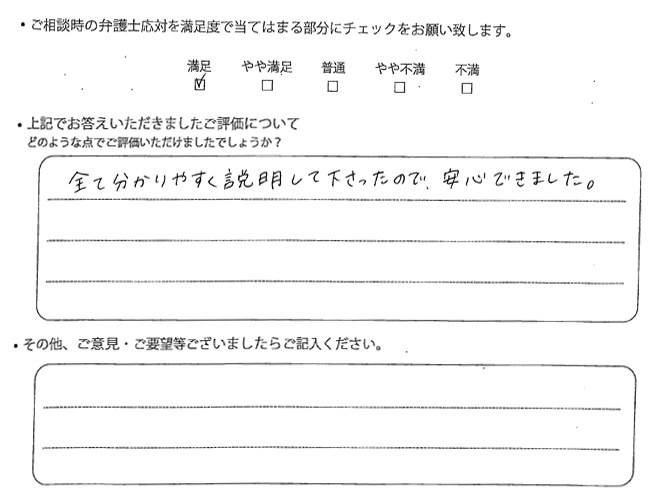 ・ご相談時の弁護士応対を満足度で当てはまる部分にチェックをお願い致します。
満足 やや満足 普通 やや不満 不満
☑ □ □ □ □
・上記でお答えいただきましたご評価について
どのような点でご評価いただけましたでしょうか？
全て分かりやすく説明して下さったので、安心できました。
・その他、ご意見・ご要望等ございましたらご記入ください。